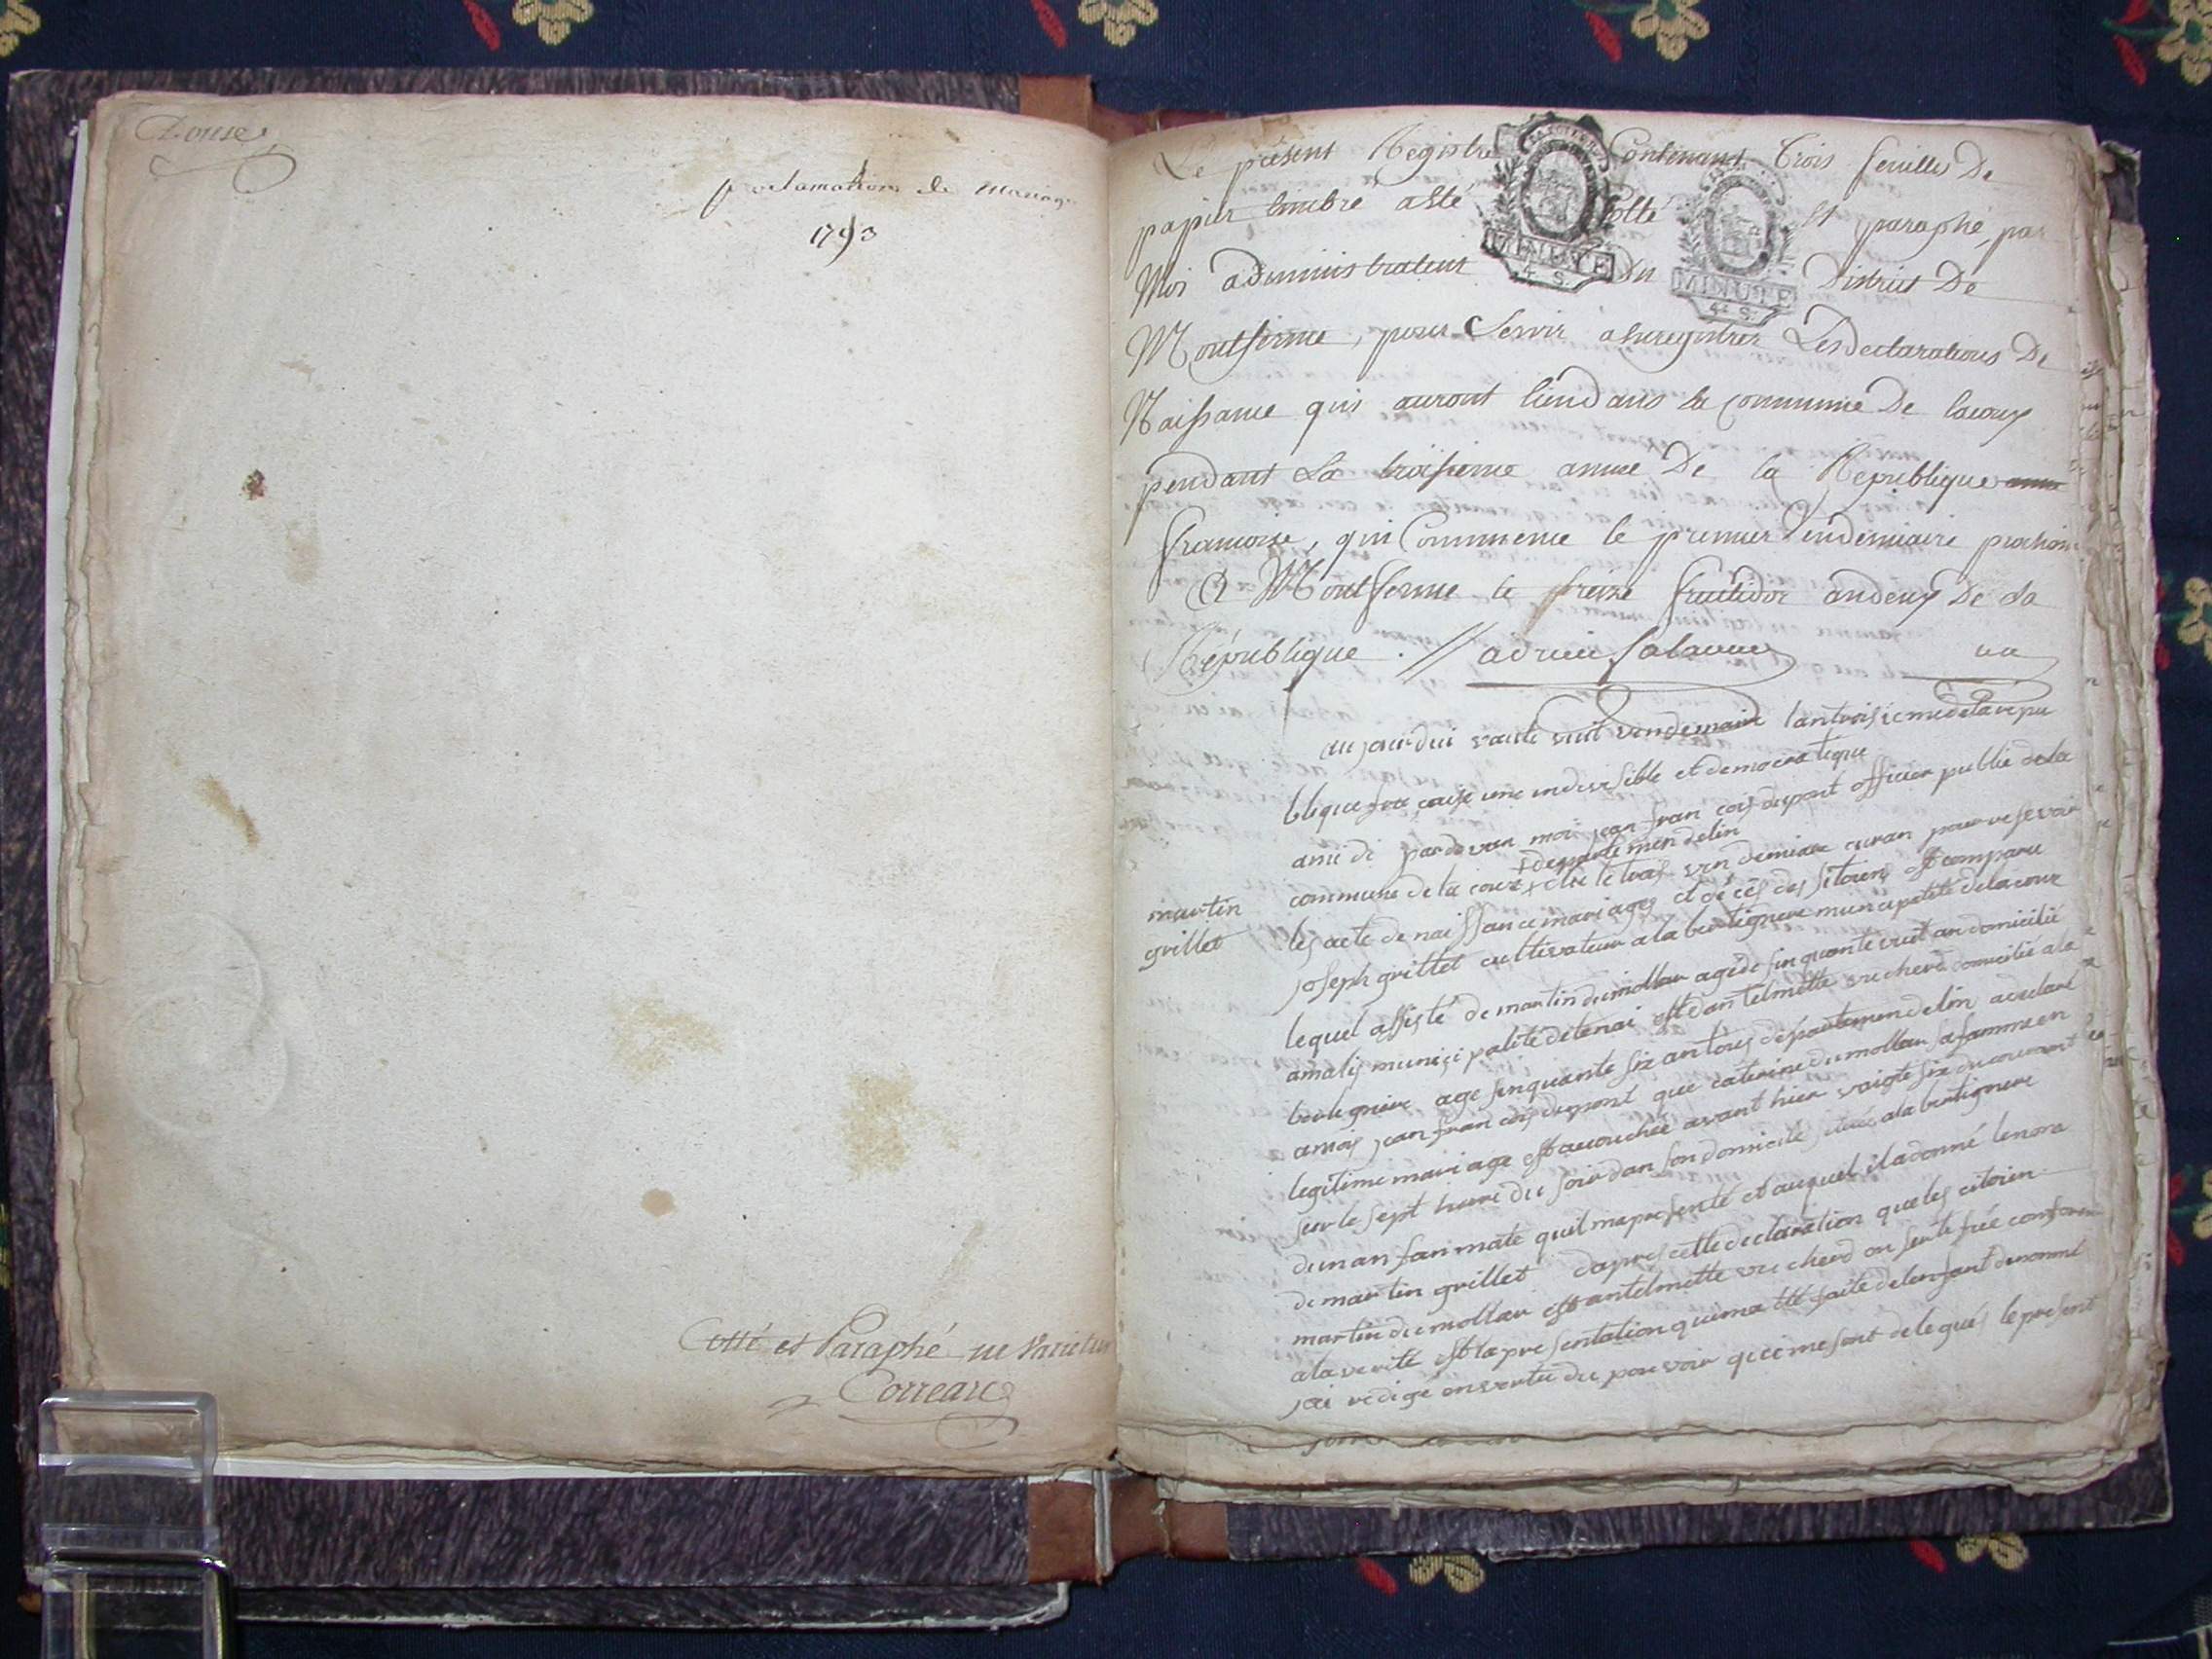 Douse
proclamation de mariage
1793
Cotté et Paraphé ne varietur
Correard
Le présent Registre Contenant Trois feuilles De
papier timbré a été Cotté et paraphé, par
Moi administrateur Du District De
Montferme, pour Servir a enregistrer Les declarations De
Naissance qui auront lieu dans la Commune De lacoux
pendant La troisieme année De la Republique
francoise, qui Commence le premier Vendemiaire prochain
A Montferme le treize fructidor an deux De la
République .//
MINUTE
4. S.
MINUTE
4. S.
martin
grillet
aujourdui vainte vuit vendemaire lantroisiemedelarepu
blique fran çaise une indivisible et democratique
a midi pardevan moi jean fran cois dupont officier public dela
commune de la coux departemendelin elu le trois vendemiere curan pour resevoir
les acte de naissance mariages et décès des sitoiens est comparu
joseph grillet cultivateur a la bertignere municipalité delacoux
lequel assisté de martin dumollar agé de sinquante vuit an domicilié
amalis municipalité detenai est dantelmette vucherd domicilié ala
bertegniere age sinquante six an tous département delin a declaré
a mois jean fran cois dupont que caterine du mollar sa famme en
legitime mariage est acouchée avant hier vaigte six du courant
sur le sept heure du soir dan son domicile situé a la bertignere
dun an fan male quil ma presenté et auquel il a donné le nom
de martin grillet dapres cette declaration que les citoien
martin du mollar est antelmette vucherd on sertifiée conforme
a la verité est la presentation qui ma été faite de lenfant denommé
jai redigé en vertu du pouvoir qui me sont delegués le present